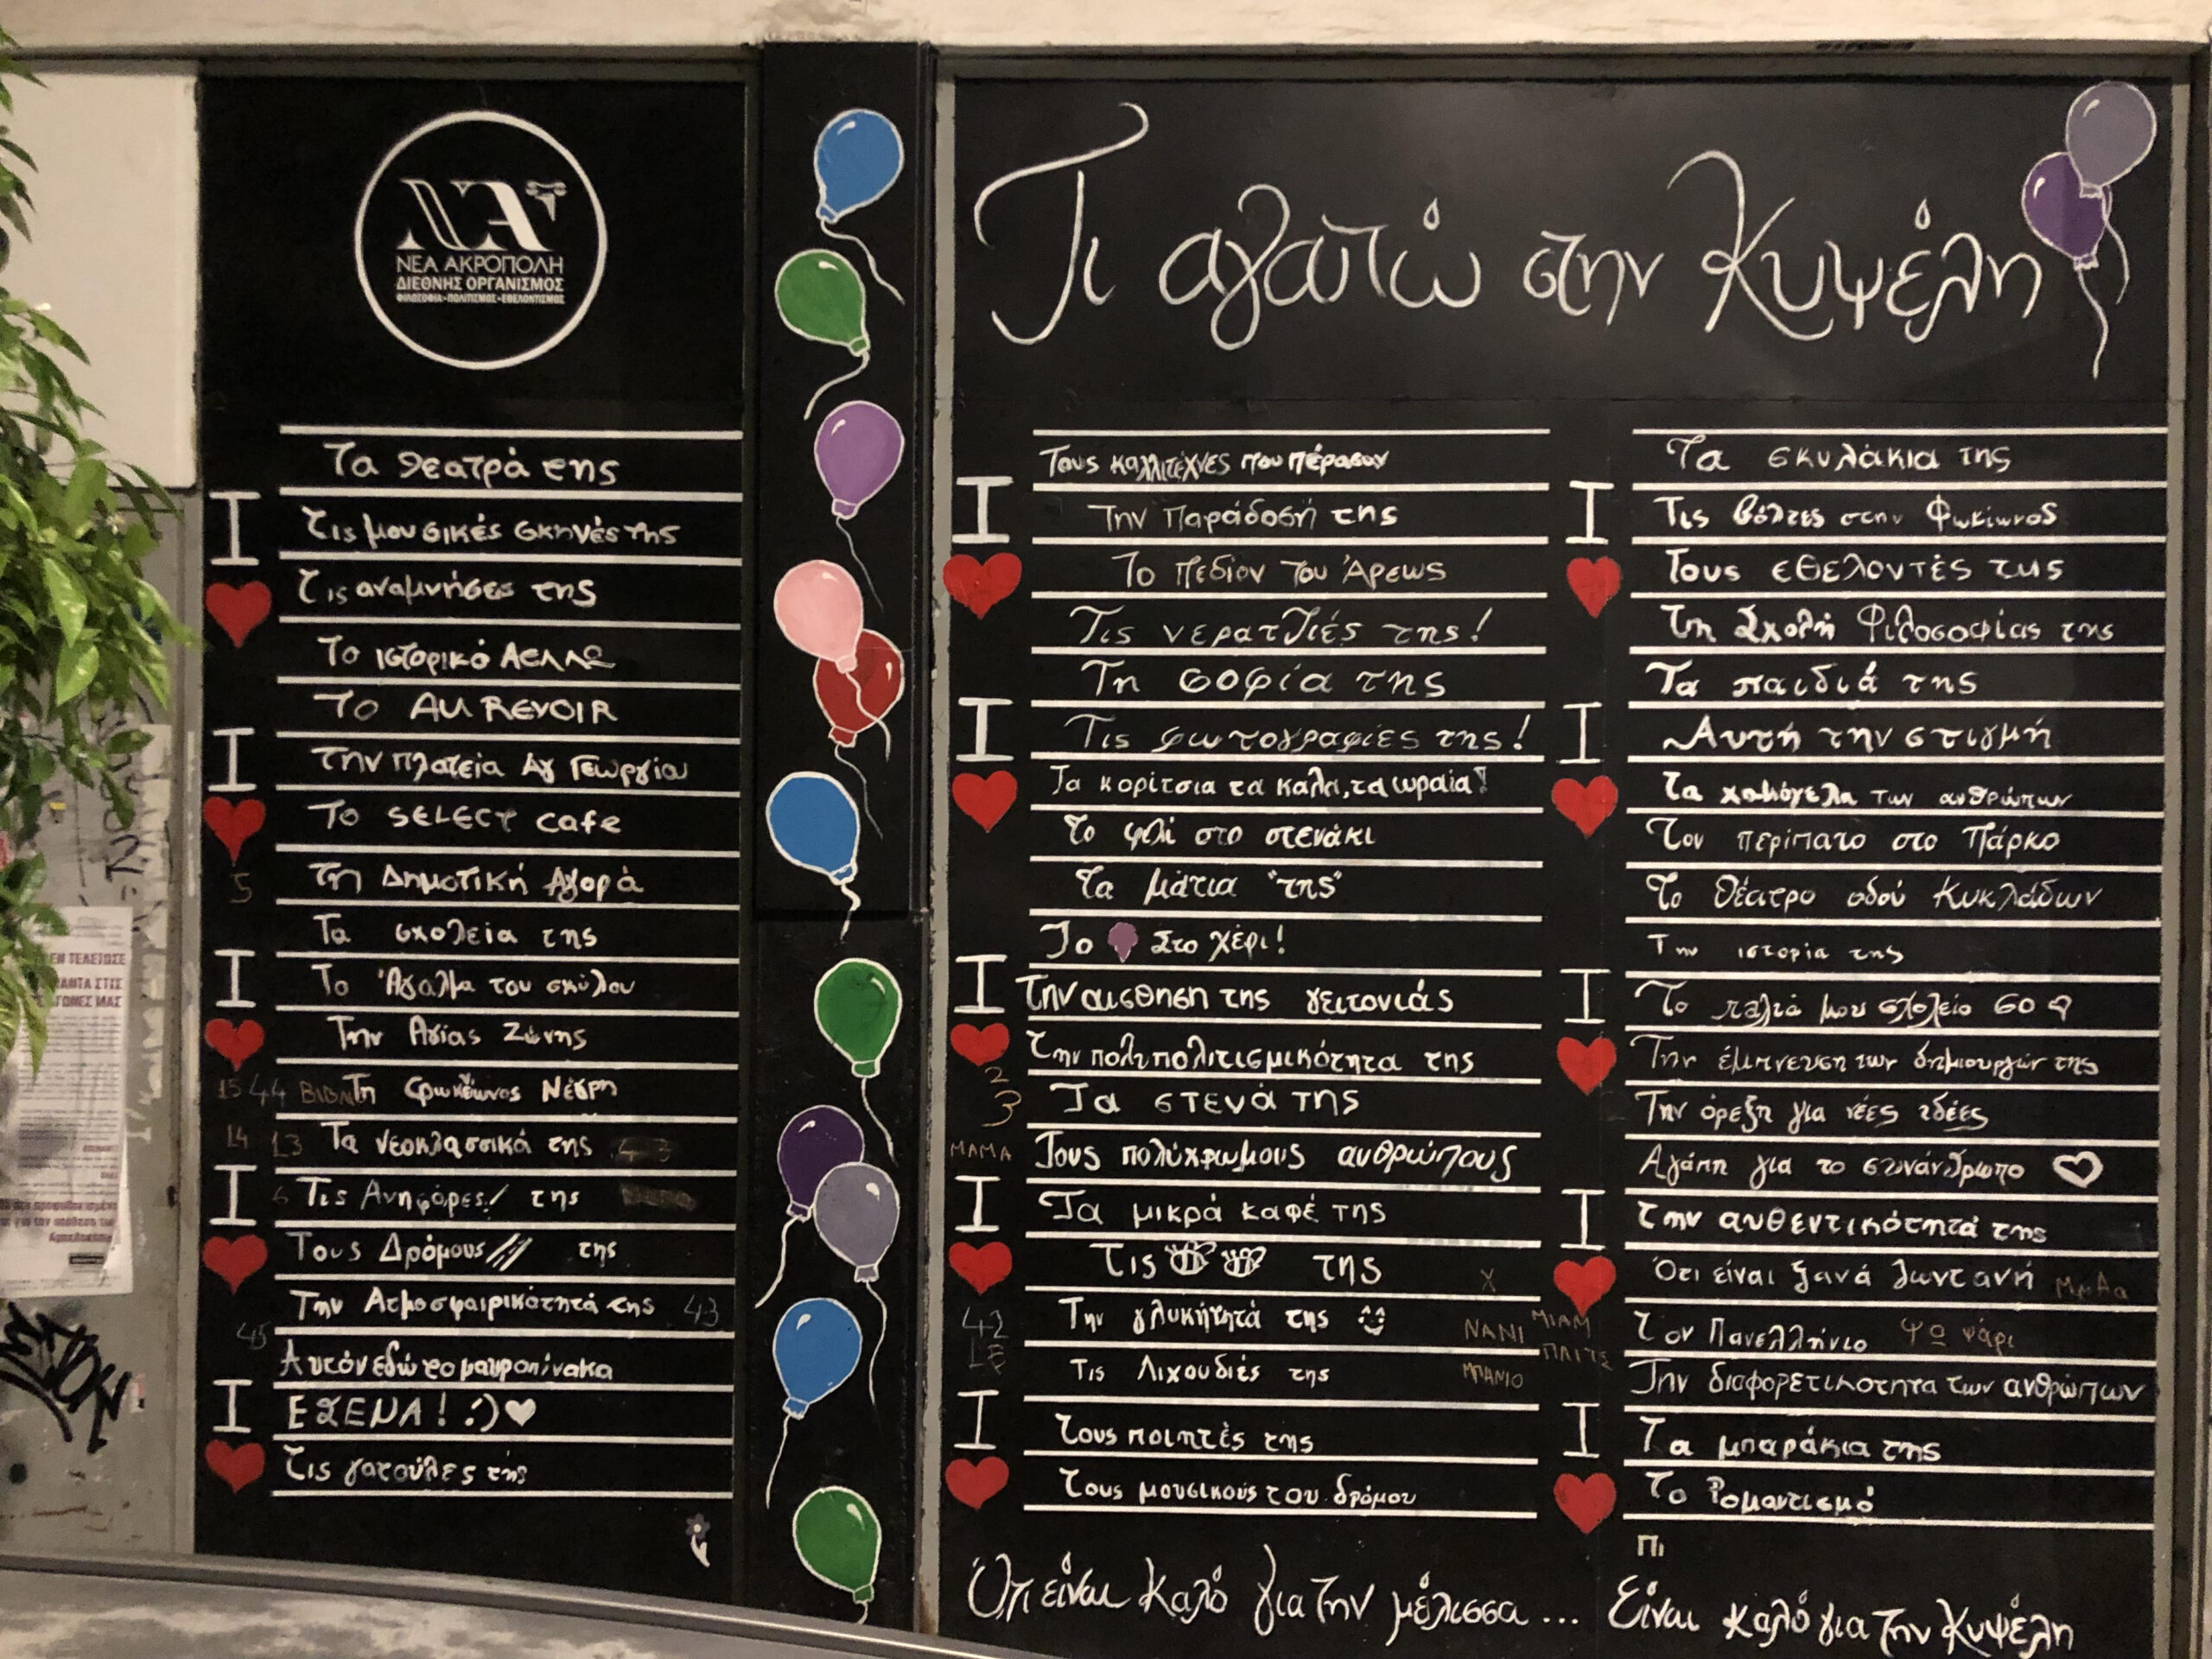 ΝΕΑ ΑΚΡΟΠΟΛΗ
ΔΙΕΘΝΗΣ ΟΡΓΑΝΙΣΜΟΣ
ΦΙΛΟΣΟΦΙΑ•ΠΟΛΙΤΙΣΜΟΣ•ΕΘΕΛΟΝΤΙΣΜΟΣ
Τι αγαπώ στην Κυψέλη
Τα θεατρά της
Τις μουσικές σκηνές της
Τις αναμνήσεις της
Το ιστορικό Αελλώ
Το AU REVOIR
Την πλατεία Αγ Γεωργίου
Το SELECT cafe
5
Τη Δημοτική Αγορά
Τα σχολεία της
Το Άγαλμα του σκύλου
Την Αγίας Ζώνης
15 44 Τη Φωκίωνος Νέγρη
14 13 Τα νεοκλασσικά της 43
6 Τις Ανηφόρες! της
Τους Δρόμους της
Την Ατμοσφαιρικότητά της 43
45
Αυτόν εδώ το μαυροπίνακα
ΕΣΕΝΑ! :) ♥
Τις γατούλες της
I ♥
I ♥
I ♥
I ♥
I ♥
Τους καλλιτέχνες που πέρασαν
Την Παράδοσή της
Το Πεδίον του Άρεως
Τις νερατζιές της!
Τη σοφία της
Τις φωτογραφίες της!
Τα κορίτσια τα καλά, τα ωραία!
Το φιλί στο στενάκι
Τα μάτια "της"
Το στο χέρι!
Την αισθηση της γειτονιάς
Την πολυπολιτισμικότητα της
2
3 Τα στενά της
ΜΑΜΑ Τους πολύχρωμους ανθρώπους
Τα μικρά καφέ της
Τις της X
42 Την γλυκήτητά της ΝΑΝΙ ΜΙΑΜ
Τις Λιχουδιές της ΜΠΑΝΙΟ
Τους ποιητές της
Τους μουσικούς του δρόμου
I ♥
I ♥
I ♥
I ♥
I ♥
Τα σκυλάκια της
Τις βόλτες στην Φωκίωνος
Τους εθελοντές της
Τη Σχολή Φιλοσοφίας της
Τα παιδιά της
Αυτή την στιγμή
Τα χαμόγελα των ανθρώπων
Τον περίπατο στο Πάρκο
Το Θέατρο οδού Κυκλάδων
Την ιστορία της
Το παλιό μου σχολείο 60
Την έμπνευση των δημιουργών της
Την όρεξη για νέες ιδέες
Αγάπη για το συνάνθρωπο
Την αυθεντικότητά της
Ότι είναι ξανά ζωντανή
Τον Πανελλήνιο ψάρι
Την διαφορετικοτητα των ανθρώπων
Τα μπαράκια της
Το Ρομαντισμό
Πι
I ♥
I ♥
I ♥
I ♥
I ♥
Ό,τι είναι καλό για την μέλισσα ... Είναι καλό για την Κυψέλη